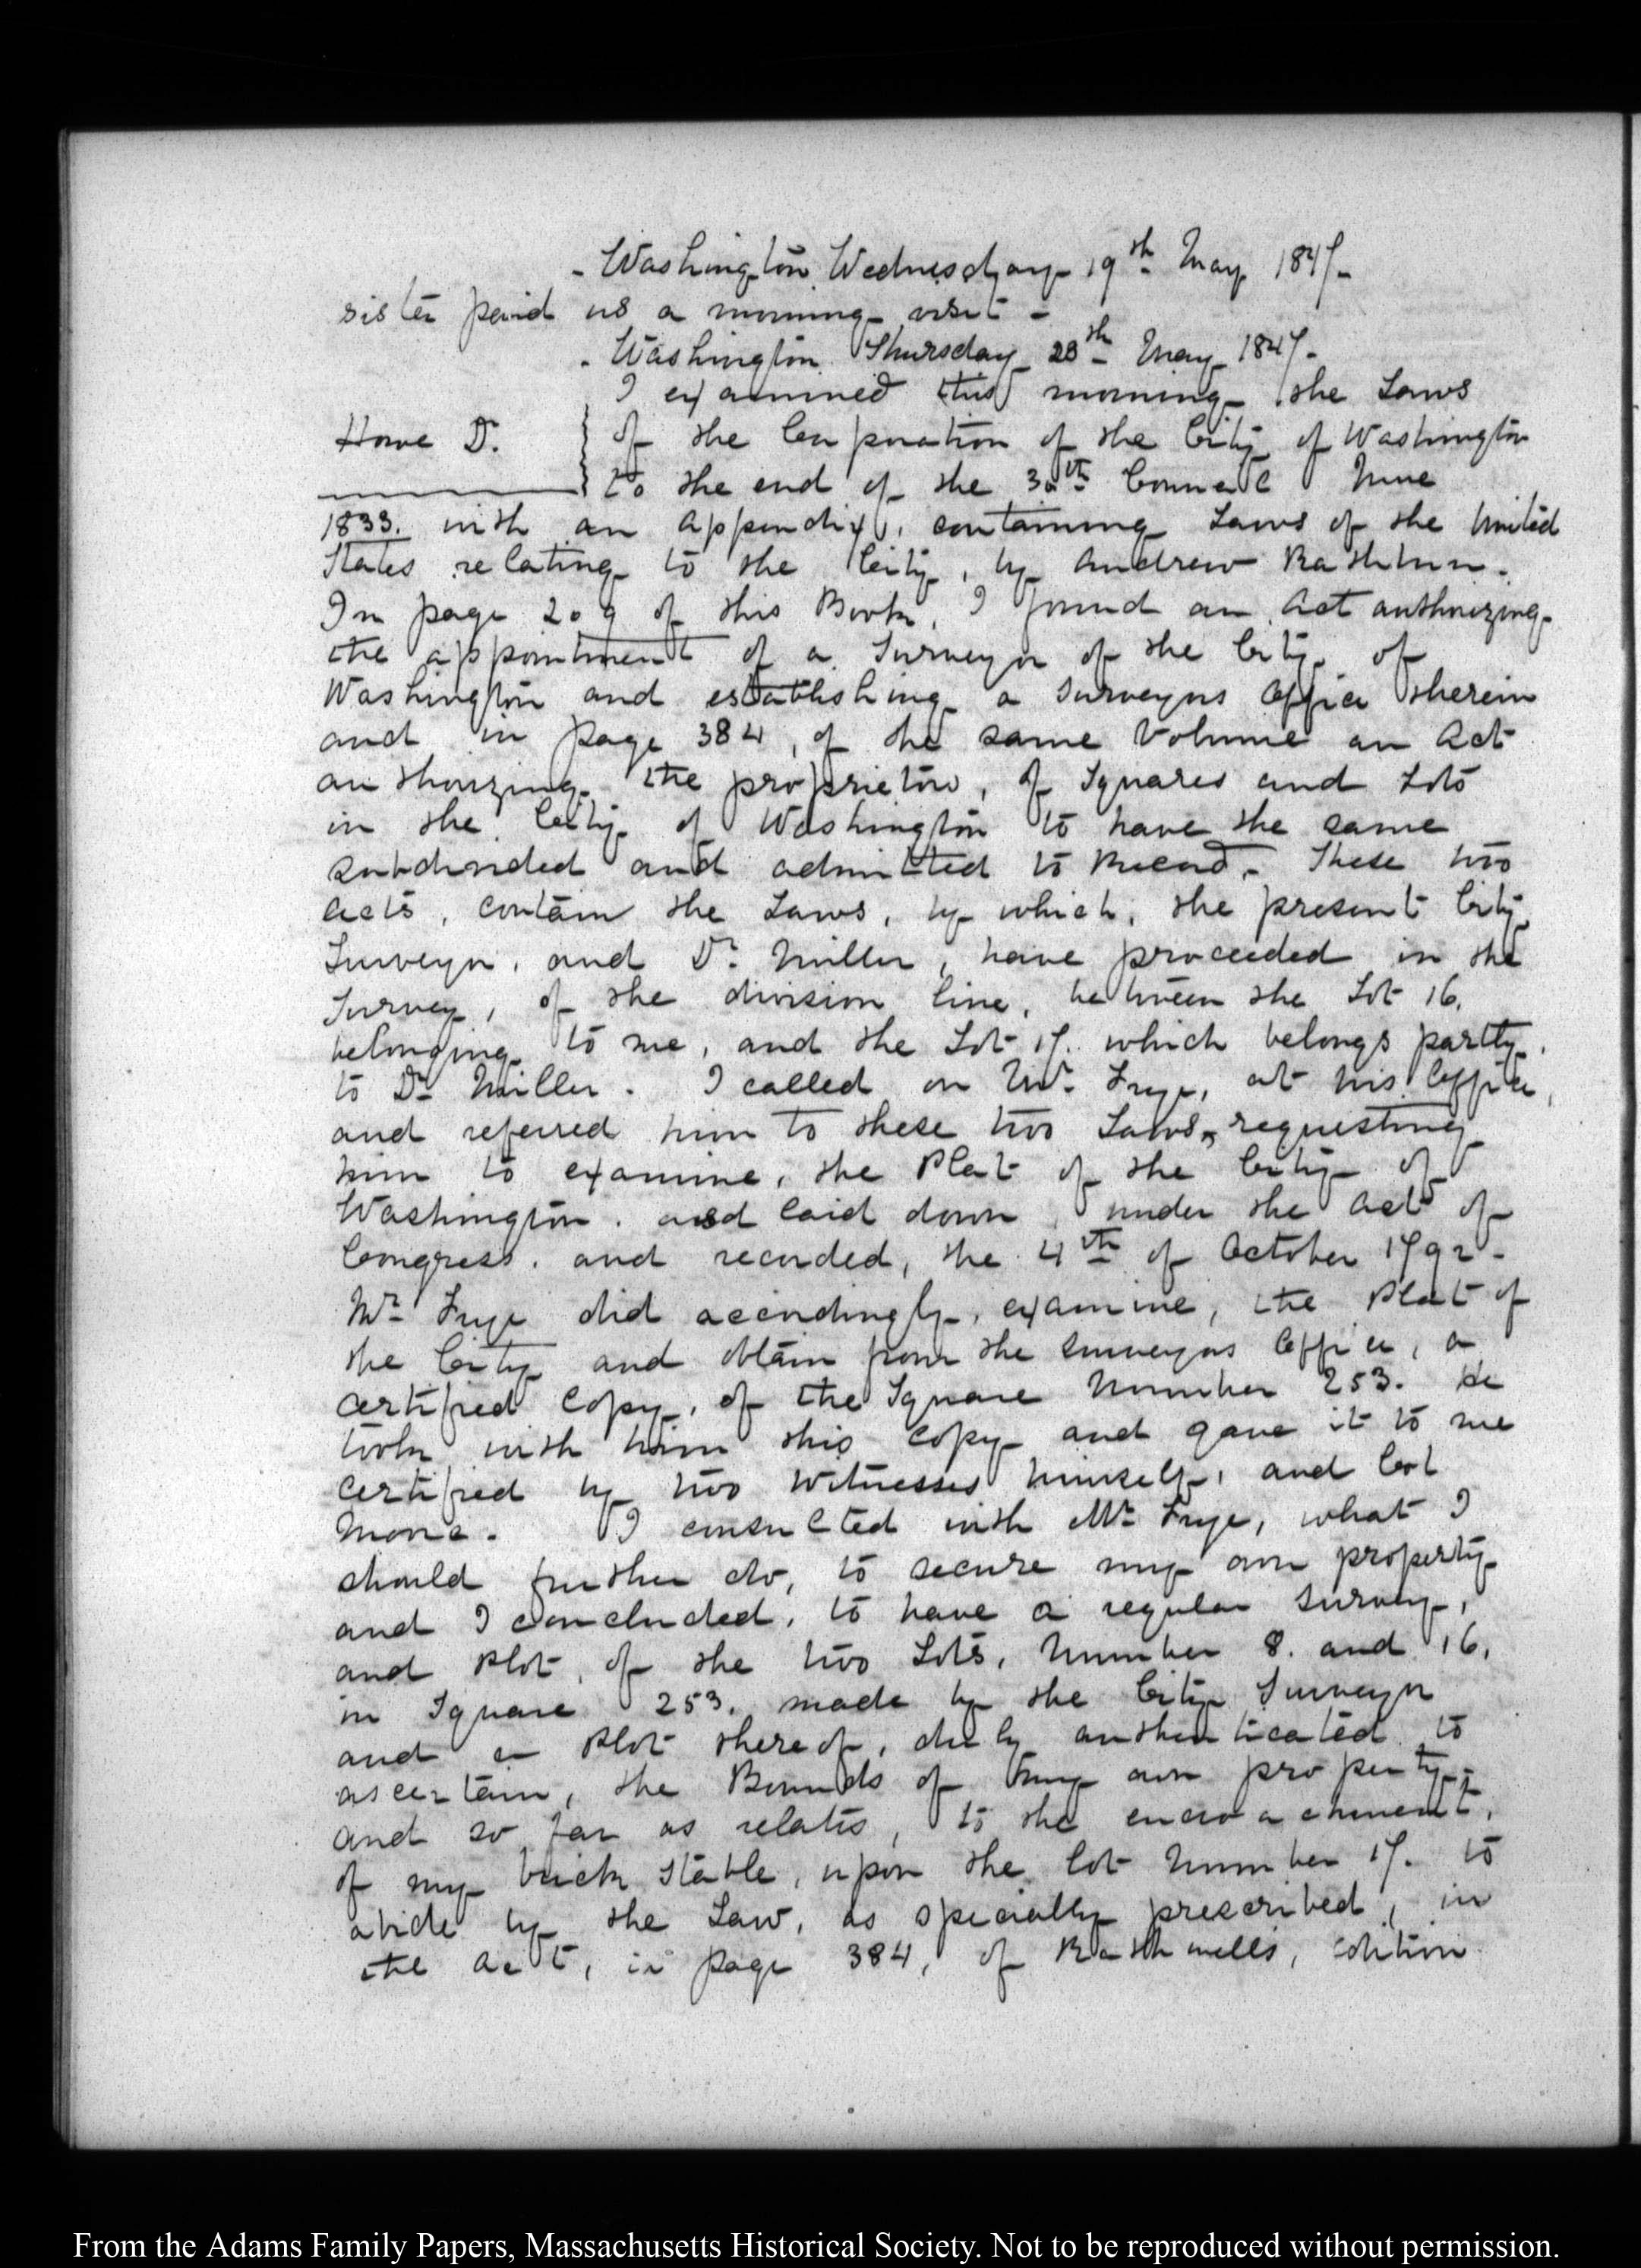 - Washington Wednesday 19th May 1847-
sister paid us a morning visit -
- Washington Thursday 20th May 1847-
I examined this morning the Laws
Howe D. of the Corporation of the City of Washington
to the end of the 30th Council June
1833. with an Appendix, containing Laws of the United
States relating to the City, by Andrew Rothwell.
In page 209 of this Book, I found an Act authorizing
the appointment of a Surveyor of the City of
Washington and establishing a Surveyors Office therein
and in page 384, of the same Volume an Act
authorizing the proprietors, of Squares and Lots
in the City of Washington to have the same
subdivided and admitted to Record. These two
acts, contain the Laws, by which, the present City
Surveyor, and Dr. Miller, have proceeded in the
Survey, of the division line, between the Lot 16.
belonging to me, and the Lot 17. which belongs partly
to Dr Miller. I called on Mr. Frye, at his Office,
and referred him to these two Laws, requesting
him to examine, the Plat of the City of
Washington. and laid down, under the Act of
Congress, and recorded, the 4th of October 1792-
Mr Frye did accordingly, examine, the Plat of
the City and obtain from the Surveyors Office, a
certified Copy, of the Square Number 253. He
took with him this Copy and gave it to me
certified by two Witnesses himself, and Col
Monroe. I consulted with Mr Frye, what I
should further do, to secure my own property
and I concluded, to have a regular Survey,
and Plot, of the two Lots, Number 8. and 16,
in Square 253. made by the City Surveyor
and a Plot thereof, duly authenticated to
ascertain, the Bounds of my own property,
and so far as relates, to the encroachment,
of my brick Stable, upon the lot Number 17. to
abide by the Law, as specially prescribed, in
the Act, in page 384, of Rothwells, edition
From the Adams Family Papers, Massachusetts Historical Society. Not to be reproduced without permission.